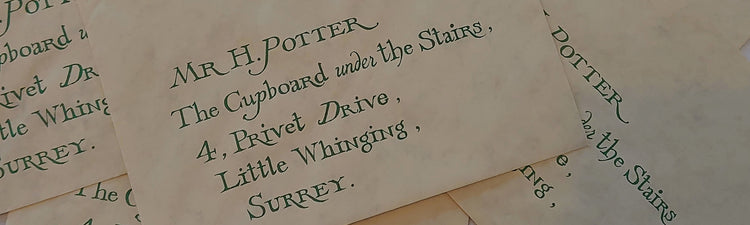 Mr H. Potter
The Cupboard under the Stairs,
4, Privet Drive,
Little Whinging,
Surrey.
Pot
pboard u
ivet Dr
tle Whing
Surrey.
The C
Potter
der the Stairs
e,
ng,